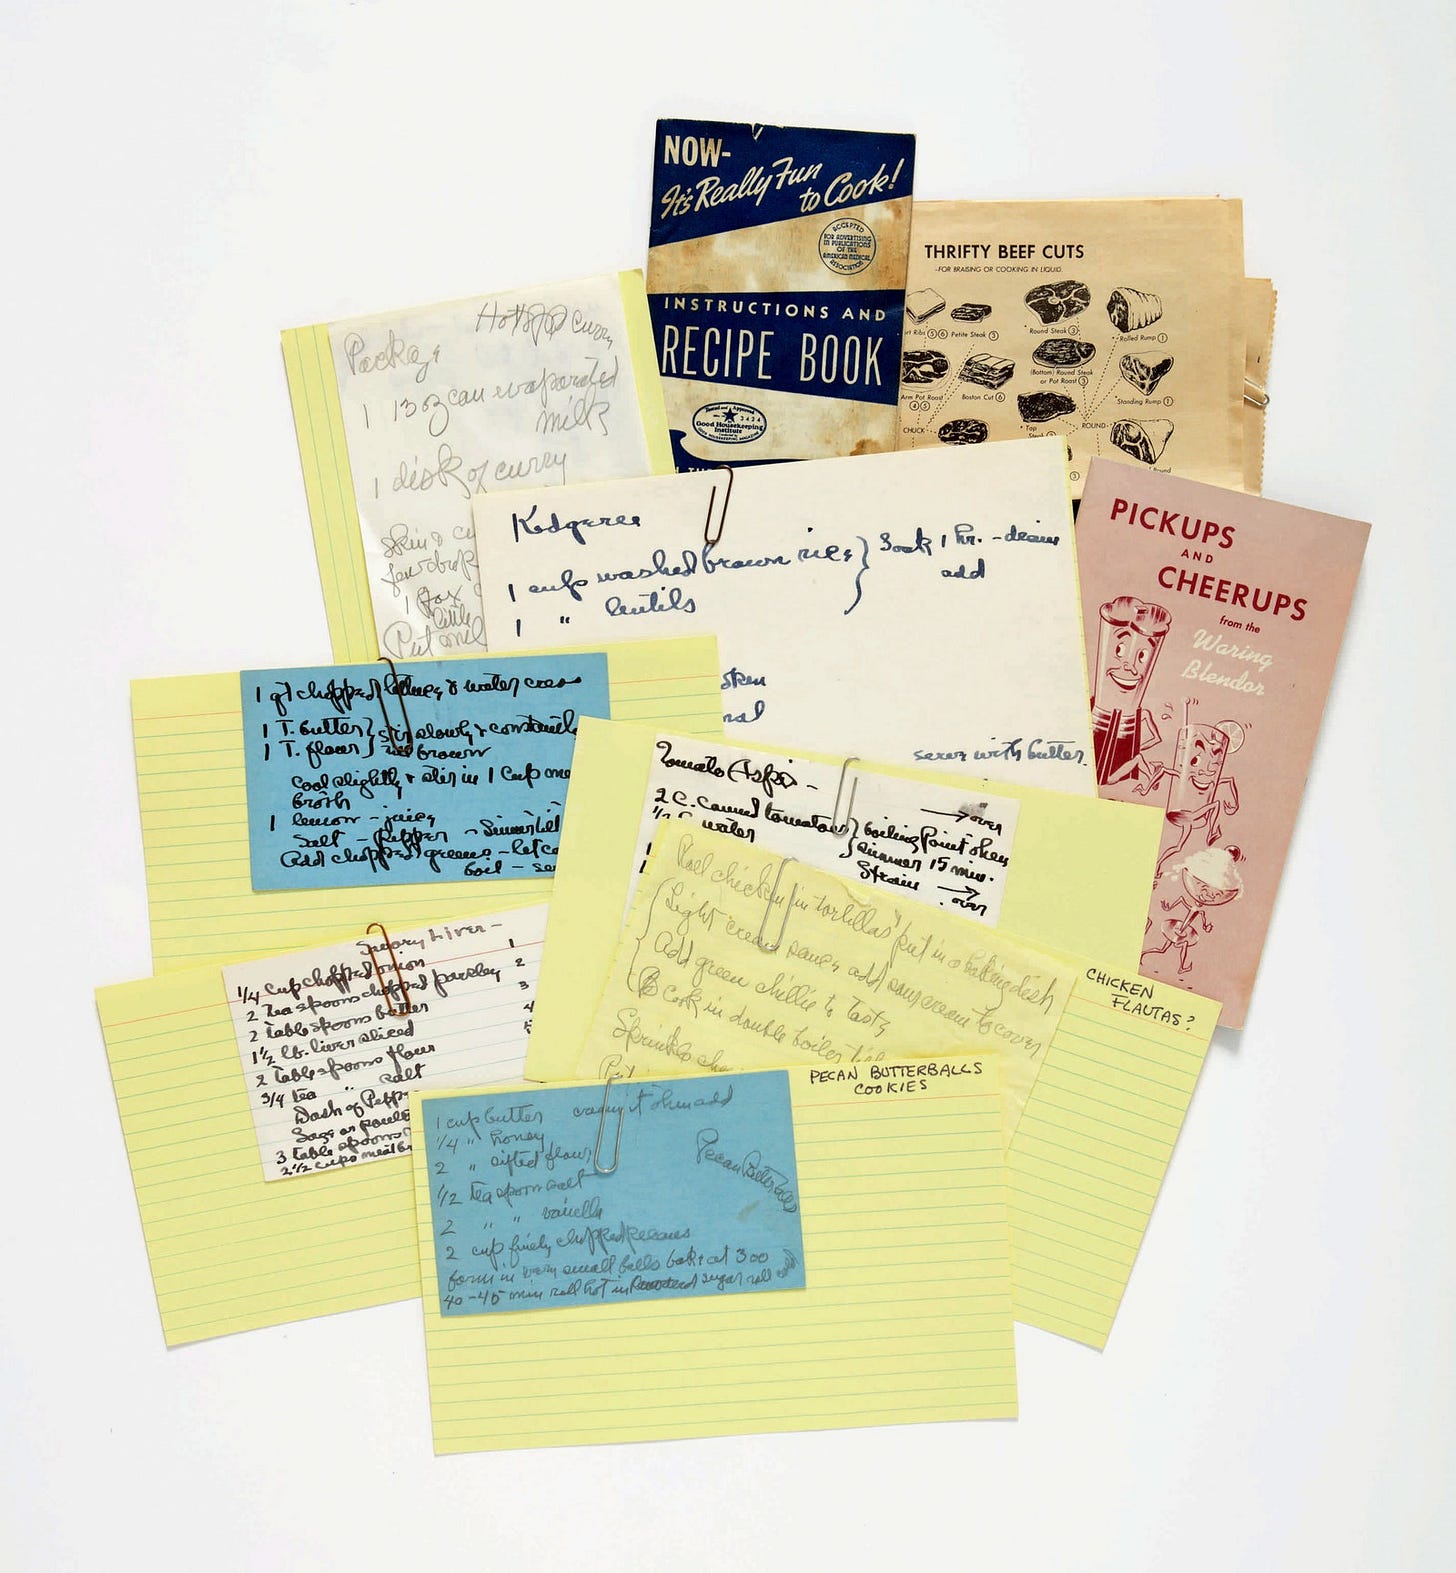 NOW-
It's Really Fun
to Cook!
ACCEPTED
FOR ADVERTISING
IN PUBLICATIONS
OF THE
AMERICAN MEDICAL
ASSOCIATION
INSTRUCTIONS AND
RECIPE BOOK
Tested and Approved
3424
Good Housekeeping
Institute
THRIFTY BEEF CUTS
-FOR BRAISING OR COOKING IN LIQUID.
rt Ribs 5 6
Petite Steak 3
Round Steak 3
Rolled Rump 1
(Bottom) Round Steak
or Pot Roast 3
Arm Pot Roast
4 5
Boston Cut 6
Standing Rump 1
Top
CHUCK
ROUND
Round
PICKUPS
AND
CHEERUPS
from the
Waring
Blendor
curry
Package
1 13 oz can evaporated
milk
1 disk of curry
Skin &
few drops
1
little
Put
Kedgeree
1 cup washed brown rice } Soak 1 hr. - drain
1 " lentils
add
serve with butter
1 qt chopped lettuce & water cress
1 T. butter } stir slowly & constantly
1 T. flour } till brown
Cool slightly & stir in 1 cup
broth
1 lemon - juice
Salt - Pepper - Simmer till
Add chopped greens - let
boil -
Tomato Aspic -
→ over
2 C. canned tomatoes } boiling point then
1/2 C. water } simmer 15 min.
Strain → over
Roll chicken in tortillas put in a baking dish
Light cream sauce add sour cream to cover
Add green chillie to taste
cook in double boiler
Sprinkle
CHICKEN
FLAUTAS?
Savory Liver -
1/4 cup chopped onion
2 teaspoons chopped parsley
2 tablespoons butter
1 1/2 lb. liver sliced
2 tablespoons flour
3/4 tea " salt
Dash of Pepper
Sage or
3 tablespoons
2 1/2 cups meat
1
2
3
4
5
PECAN BUTTERBALLS
COOKIES
1 cup butter cream it then add
1/4 " honey
2 " sifted flour
1/2 teaspoon salt
2 " " vanilla
2 cup finely chopped pecans
Pecan Butter Balls
form in very small balls bake at 300
40-45 min roll hot in sugar roll